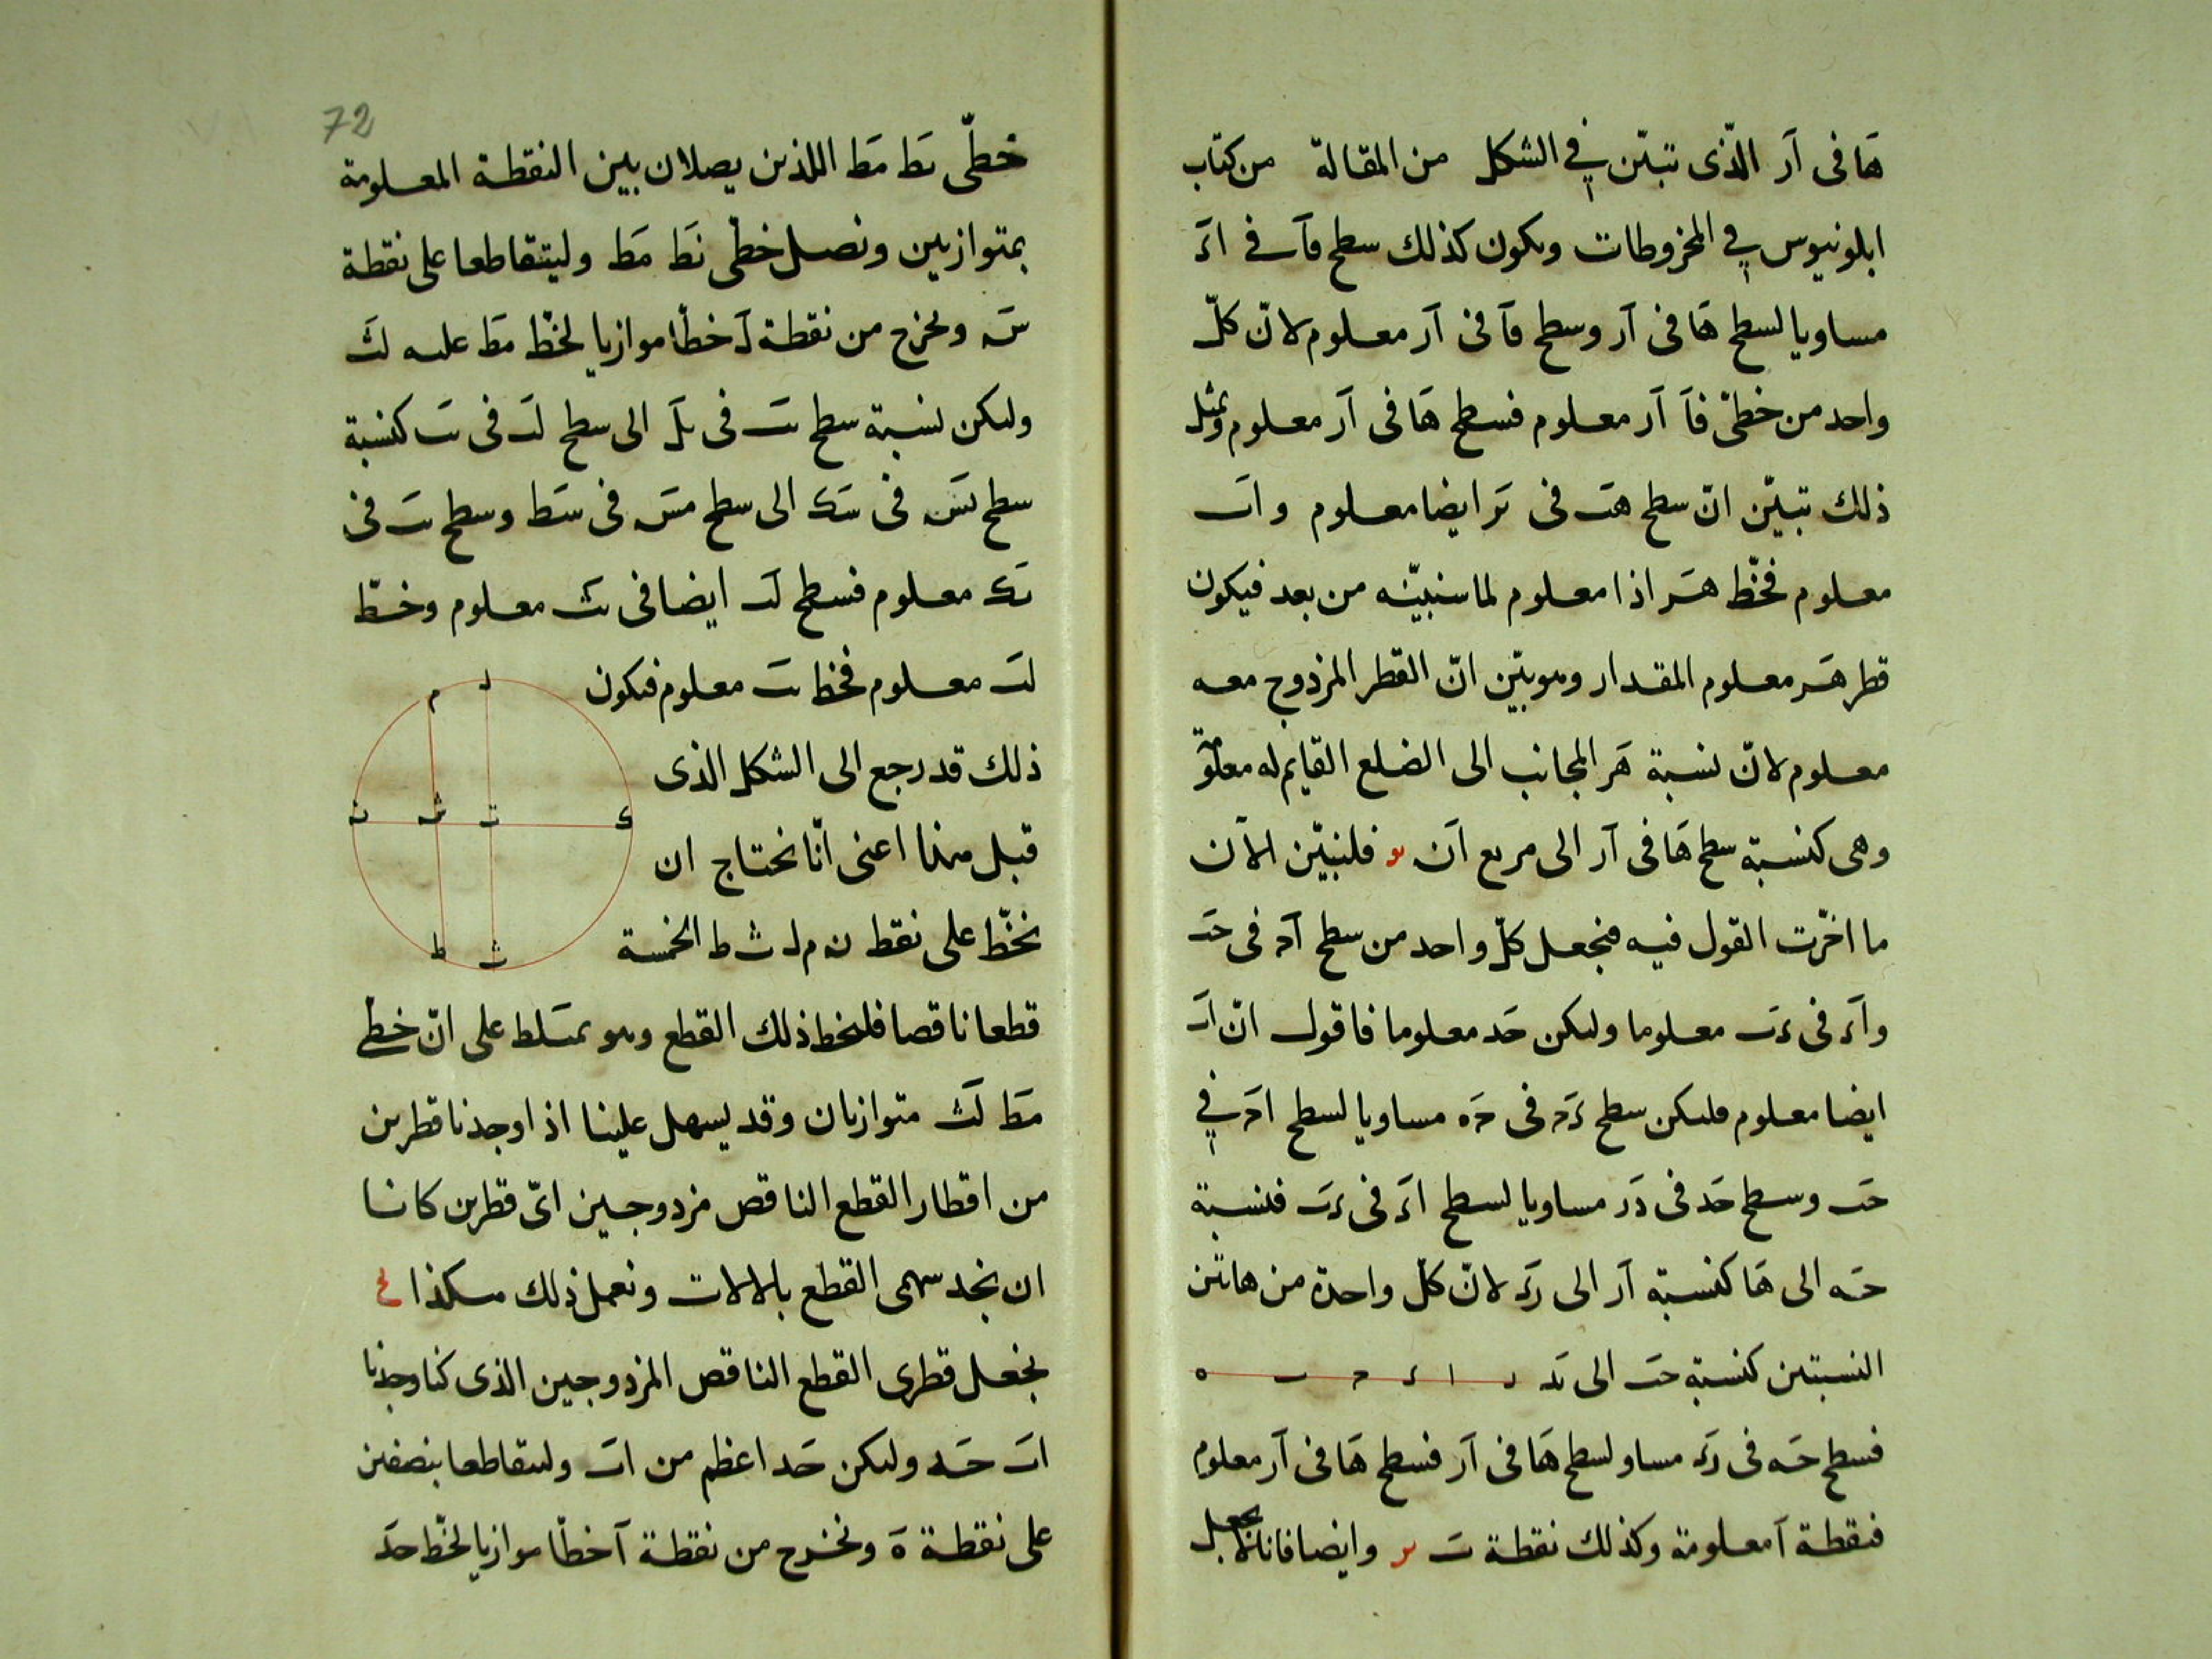 هَا فى اَر الّذى تبيّن فى الشكل من المقالة من كتاب
ابلونيوس فى المخروطات وىكون كذلك سطح فاَ فى اءَ
مساويا لسطح هَا فى اَر وسطح فاَ فى اَر معلوم لانّ كلّ
واحد من خطّى فاَ اَر معلوم فسطح هَا فى اَر معلوم وبمثل
ذلك تبيّن انّ سطح هَب فى بَر ايضا معلوم واَب
معلوم فخطّ هَر اذا معلوم لما سنبيّنه من بعد فيكون
قطر هَر معلوم المقدار وهو بيّن انّ القطر المزدوج معه
معلوم لانّ نسبة هَر المجانب الى الضلع القايم له معلومة
وهى كنسبة سطح هَا فى اَر الى مربع اَن فلنبيّن الآن
ما اخّرت القول فيه فنجعل كلّ واحد من سطح اَحـ فى حَب
واَء فى ءَب معلوما ولىكن حَد معلوما فاقول انّ اَب
ايضا معلوم فلىكن سطح ءَحـ فى حَه مساويا لسطح اَحـ فى
حَب وسطح حَد فى دَر مساويا لسطح اءَ فى ءَب فنسبة
حَه الى هَا كنسبة اَر الى رَء لانّ كلّ واحدة من هاتىن
النسبتىن كنسبة حَب الى بَد ر ا ء حـ ب ه
فسطح حَه فى رَء مساو لسطح هَا فى اَر فسطح هَا فى اَر معلوم
فنقطة اَ معلومة وكذلك نقطة بَ وايضا فانا نجعل
72
خطّى بَط مَط اللذىن يصلان بين النقطة المعلومة
بمتوازيين ونصل خطّى نَط مَط وليتقاطعا على نقطة
سَ ونخرج من نقطة لَ خطّا موازيا لخطّ مَط علىه لَث
ولىكن نسبة سطح فى الى سطح لَت فى كنسبة
سطح نَس فى سَك الى سطح مَس فى سَط وسطح فى
معلوم فسطح لَت ايضا فى تَث معلوم وخطّ
لَت معلوم فخط معلوم فىكون
ذلك قد رجع الى الشكل الذى
قبل هذا اعنى انّا نحتاج ان
نخطّ على نقط ن م ل ث ط الخمسة
قطعا ناقصا فلىخط ذلك القطع وهو بمسَلط على انّ خطى
مَط لَث متوازيان وقد يسهل علينا اذا وجدنا قطرىن
من اقطار القطع الناقص مزدوجين اىّ قطرىن كانا
ان نجد سهمى القطع بالالات ونعمل ذلك هكذا
نجعل قطرى القطع الناقص المزدوجين الذى كنا وجدنا
اَب حَد ولىكن حَد اعظم من اَب ولىتقاطعا بنصفىن
على نقطة هَ ونخرج من نقطة اَ خطّا موازيا لخطّ حَد
م ل
ن ش ت ك
ط ث